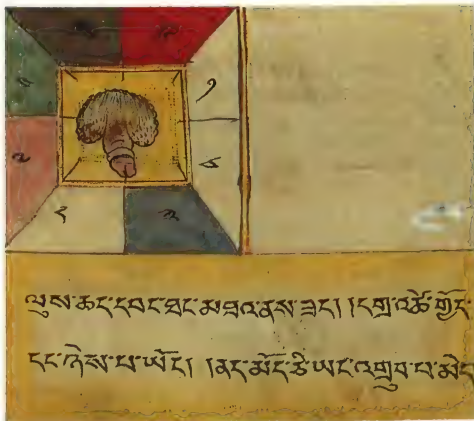 ལུས་ཆད་དབང་ཐང་མཐའ་ནས་ཟད། །དགྲ་འཚེ་གྱོད་
དང་ཉེས་པ་ཡོད། ཅི་ཡང་འགྲུབ་པ་མེད